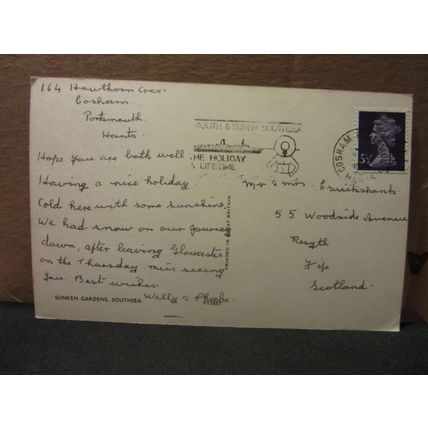 164 Hawthorn Cres.
Cosham
Portsmouth
Hants.
Hope you are both well
Having a nice holiday.
Cold here with some sunshine
We had snow on our journey
down, after leaving Gloucester
on the Thursday miss seeing
you. Best wishes
Wally & Phoebe.
SUNKEN GARDENS, SOUTHSEA
PRINTED IN GREAT BRITAIN
MOUTH & SUNNY SOUTHSEA
THE HOLIDAY
A LIFETIME
COSHAM
5½
Mr & Mrs. Cruickshank
55 Woodside Avenue
Rosyth
Fife
Scotland.